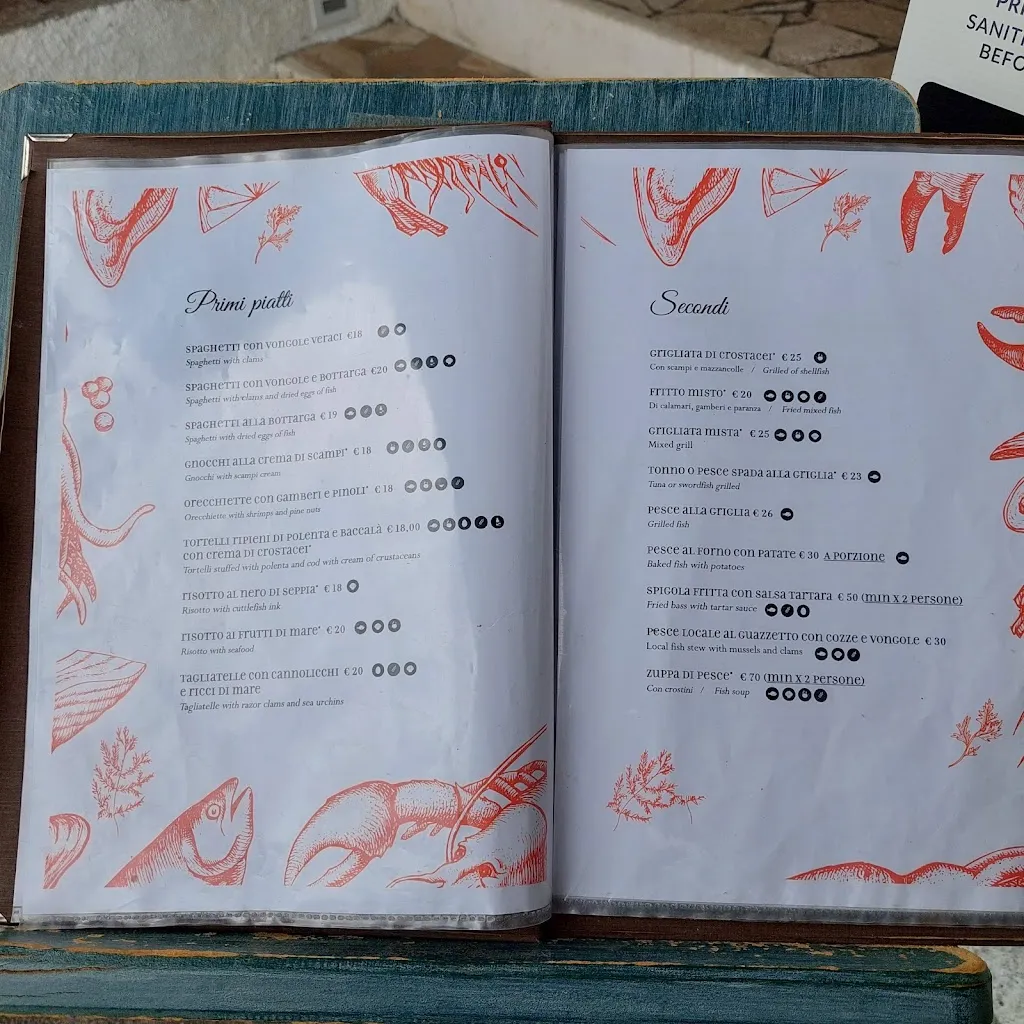 PR
SANIT
BEFO
Primi piatti
SPAGHETTI CON VONGOLE VERACI €18
Spaghetti with clams
SPAGHETTI CON VONGOLE E BOTTARGA €20
Spaghetti with clams and dried eggs of fish
SPAGHETTI ALLA BOTTARGA € 19
Spaghetti with dried eggs of fish
GNOCCHI ALLA CREMA DI SCAMPI* € 18
Gnocchi with scampi cream
ORECCHIETTE CON GAMBERI E PINOLI* € 18
Orecchiette with shrimps and pine nuts
TORTELLI RIPIENI DI POLENTA E BACCALÀ € 18,00
CON CREMA DI CROSTACEI*
Tortelli stuffed with polenta and cod with cream of crustaceans
RISOTTO AL NERO DI SEPPIA* € 18
Risotto with cuttlefish ink
RISOTTO AI FRUTTI DI MARE* € 20
Risotto with seafood
TAGLIATELLE CON CANNOLICCHI € 20
E RICCI DI MARE
Tagliatelle with razor clams and sea urchins
Secondi
GRIGLIATA DI CROSTACEI* € 25
Con scampi e mazzancolle / Grilled of shellfish
FRITTO MISTO* € 20
Di calamari, gamberi e paranza / Fried mixed fish
GRIGLIATA MISTA* € 25
Mixed grill
TONNO O PESCE SPADA ALLA GRIGLIA* € 23
Tuna or swordfish grilled
PESCE ALLA GRIGLIA € 26
Grilled fish
PESCE AL FORNO CON PATATE € 30 A PORZIONE
Baked fish with potatoes
SPIGOLA FRITTA CON SALSA TARTARA € 50 (MIN X 2 PERSONE)
Fried bass with tartar sauce
PESCE LOCALE AL GUAZZETTO CON COZZE E VONGOLE € 30
Local fish stew with mussels and clams
ZUPPA DI PESCE* € 70 (MIN X 2 PERSONE)
Con crostini / Fish soup